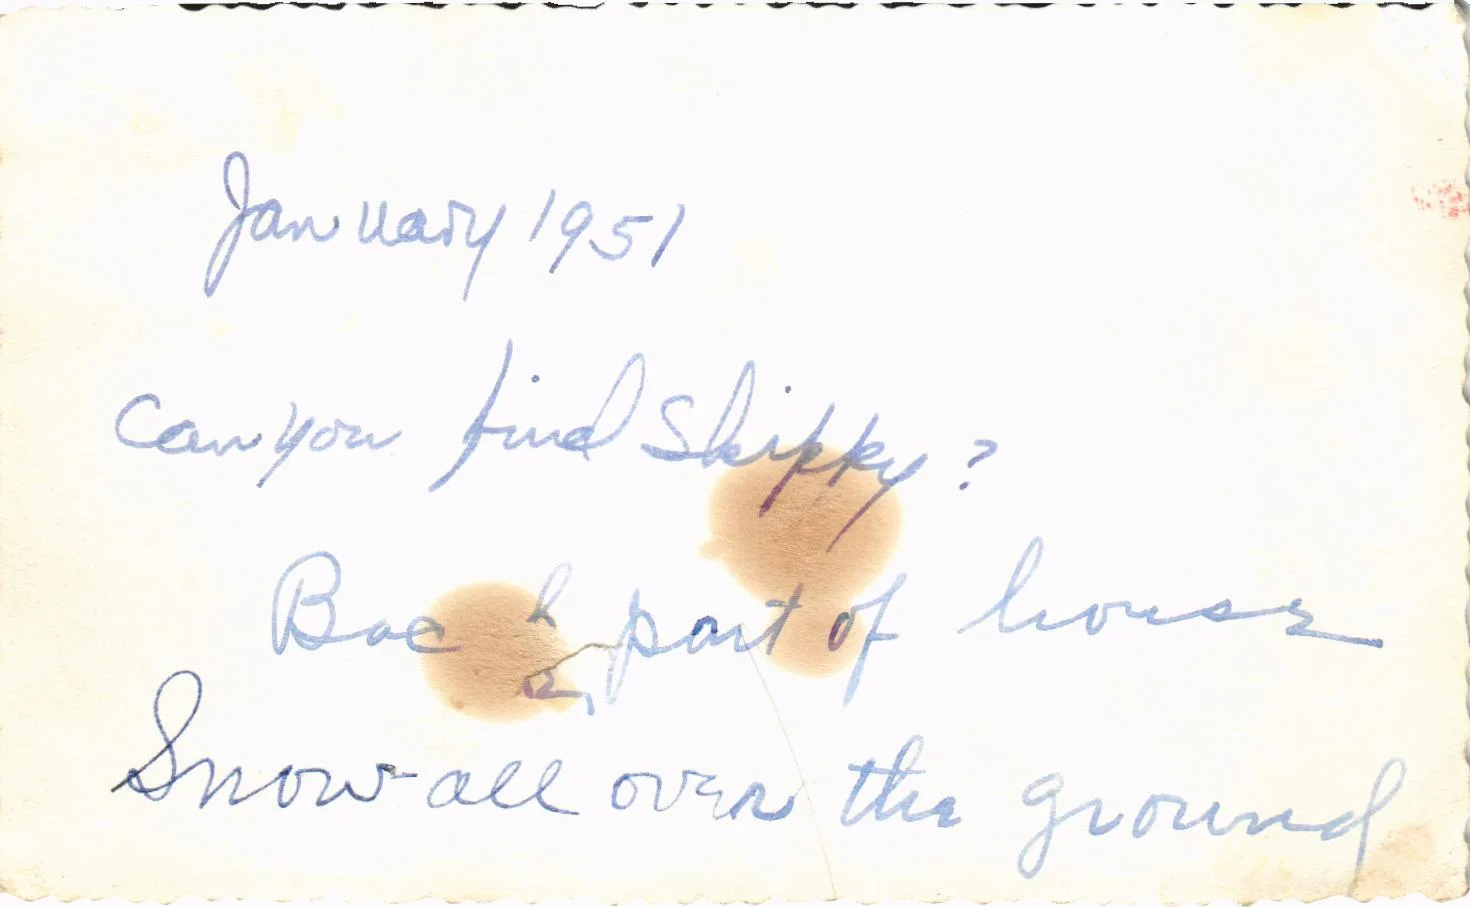 January 1951
Can you find Skippy?
Back part of house
Snow-all over the ground